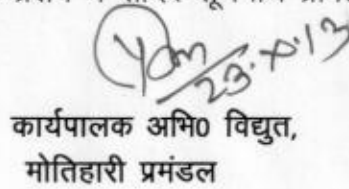 23.X.13
कार्यपालक अभि0 विद्युत,
मोतिहारी प्रमंडल